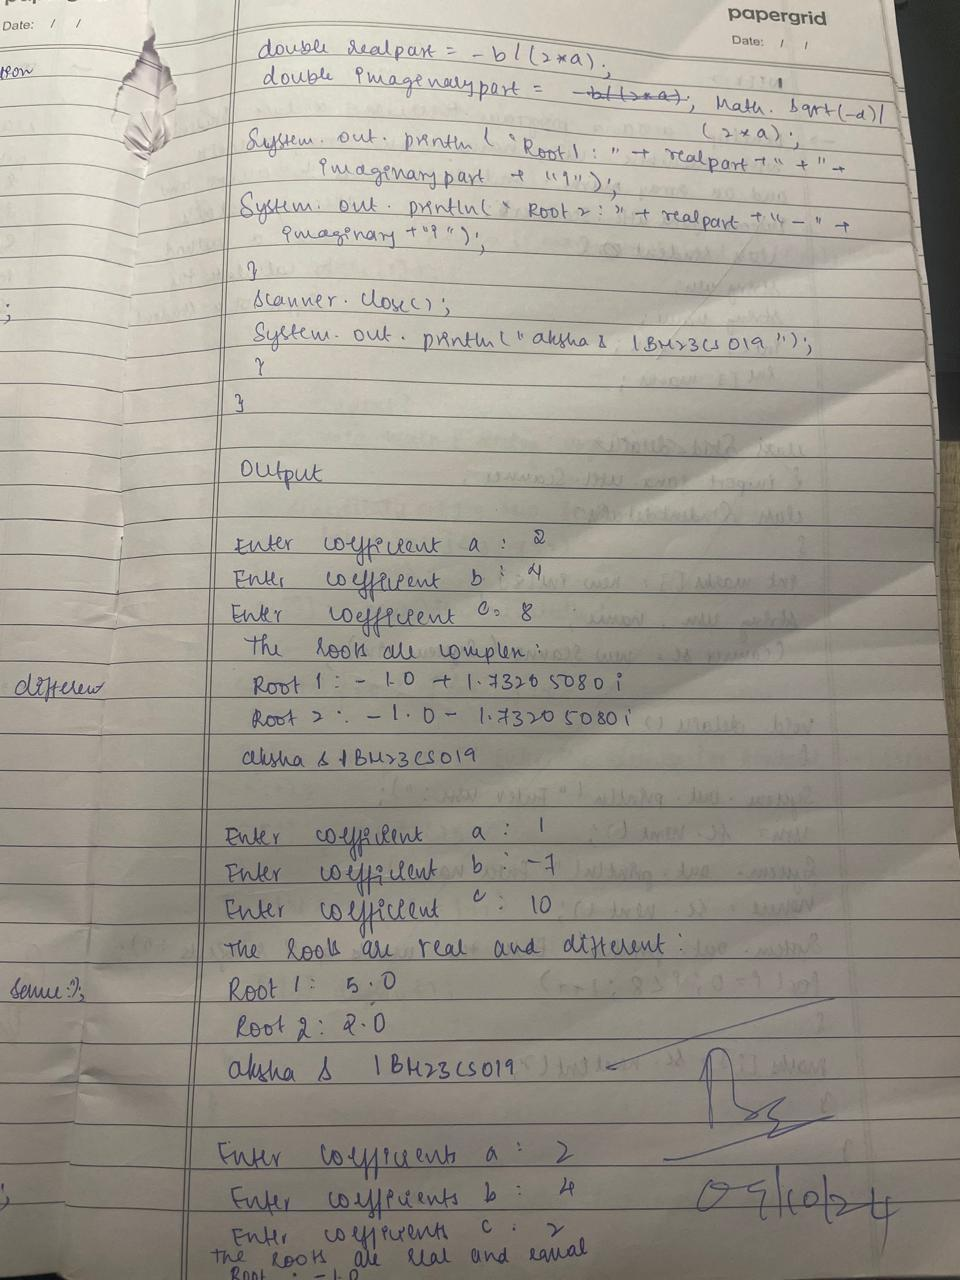 papergrid
Date: / /
Date: / /
double realpart = -b/(2*a);
double imaginarypart = -b/(2*a); Math. sqrt(-d)/
(2*a);
System. out. println( "Root 1 : " + realpart + " + " +
imaginarypart + "i");
System. out. println( " Root 2 : " + realpart + " - " +
imaginary + "i");
}
Scanner. close();
System. out. println(" aksha S 1BH23CS019 ");
}
}
Output
Enter coefficient a : 2
Enter coefficient b : 4
Enter coefficient c : 8
The roots are complex :
different
Root 1 : - 1.0 + 1.73205080 i
Root 2 : - 1.0 - 1.73205080 i
aksha S 1BH23CS019
Enter coefficient a : 1
Enter coefficient b : -7
Enter coefficient c : 10
The roots are real and different :
Root 1 : 5.0
Root 2 : 2.0
aksha S 1BH23CS019
Enter coefficients a : 2
Enter coefficients b : 4
09/10/24
Enter coefficients c : 2
The roots are real and equal
Root : -1.0